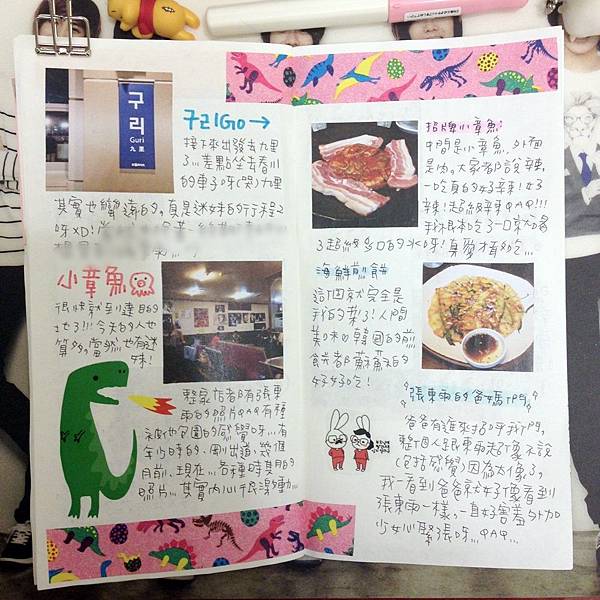 구리
Guri
九里
구리GO→
接下來出發去九里
了...差點坐去春川
的車子呀(哭)九里
其實也蠻遠的,真是迷妹的行程2
呀XD!
小章魚
很快就到達目的
地了!!!今天的人也
算多,當然也有迷
妹!
整家店都有張東
雨的照片QAQ有種
被他包圍的感覺呀...有
年少時的、剛出道、幾個
月前、現在...各種時期的
照片...其實內心很激動...
招牌小章魚:
中間是小章魚,外面
是肉。大家都說辣,
一吃真的好辣!好
辣!超級辣QAQ!!!
我根本吃了一口就喝
3超級多口的水呀!真的
海鮮煎餅
這個就完全是
我的菜了!人間
美味♡韓國的煎
餅都酥酥脆的
好好吃!
張東雨的爸媽們
爸爸有進來招呼我們,
整個人跟東雨超像不說
(包括感覺)因為太像了,
我一看到爸爸就好像看到
張東雨一樣,一直好害羞外加
少女心緊張呀...QAQ...